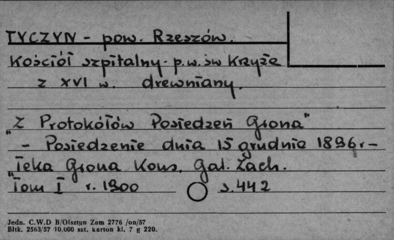 TYCZYN - pow. Rzeszów.
Kościół szpitalny - p.w. św Krzyża
z XVI w. drewniany.
"Z Protokółów Posiedzeń Grona"
- Posiedzenie dnia 15 grudnia 1896 r -
Teka Grona Kons. Gal. Zach.
"Tom I r. 1900 s. 442
Jedn. C.W.D B/Olsztyn Zam 2776 /on/57
Bltk. 2563/57 10.000 szt. karton kl. 7 g 220.